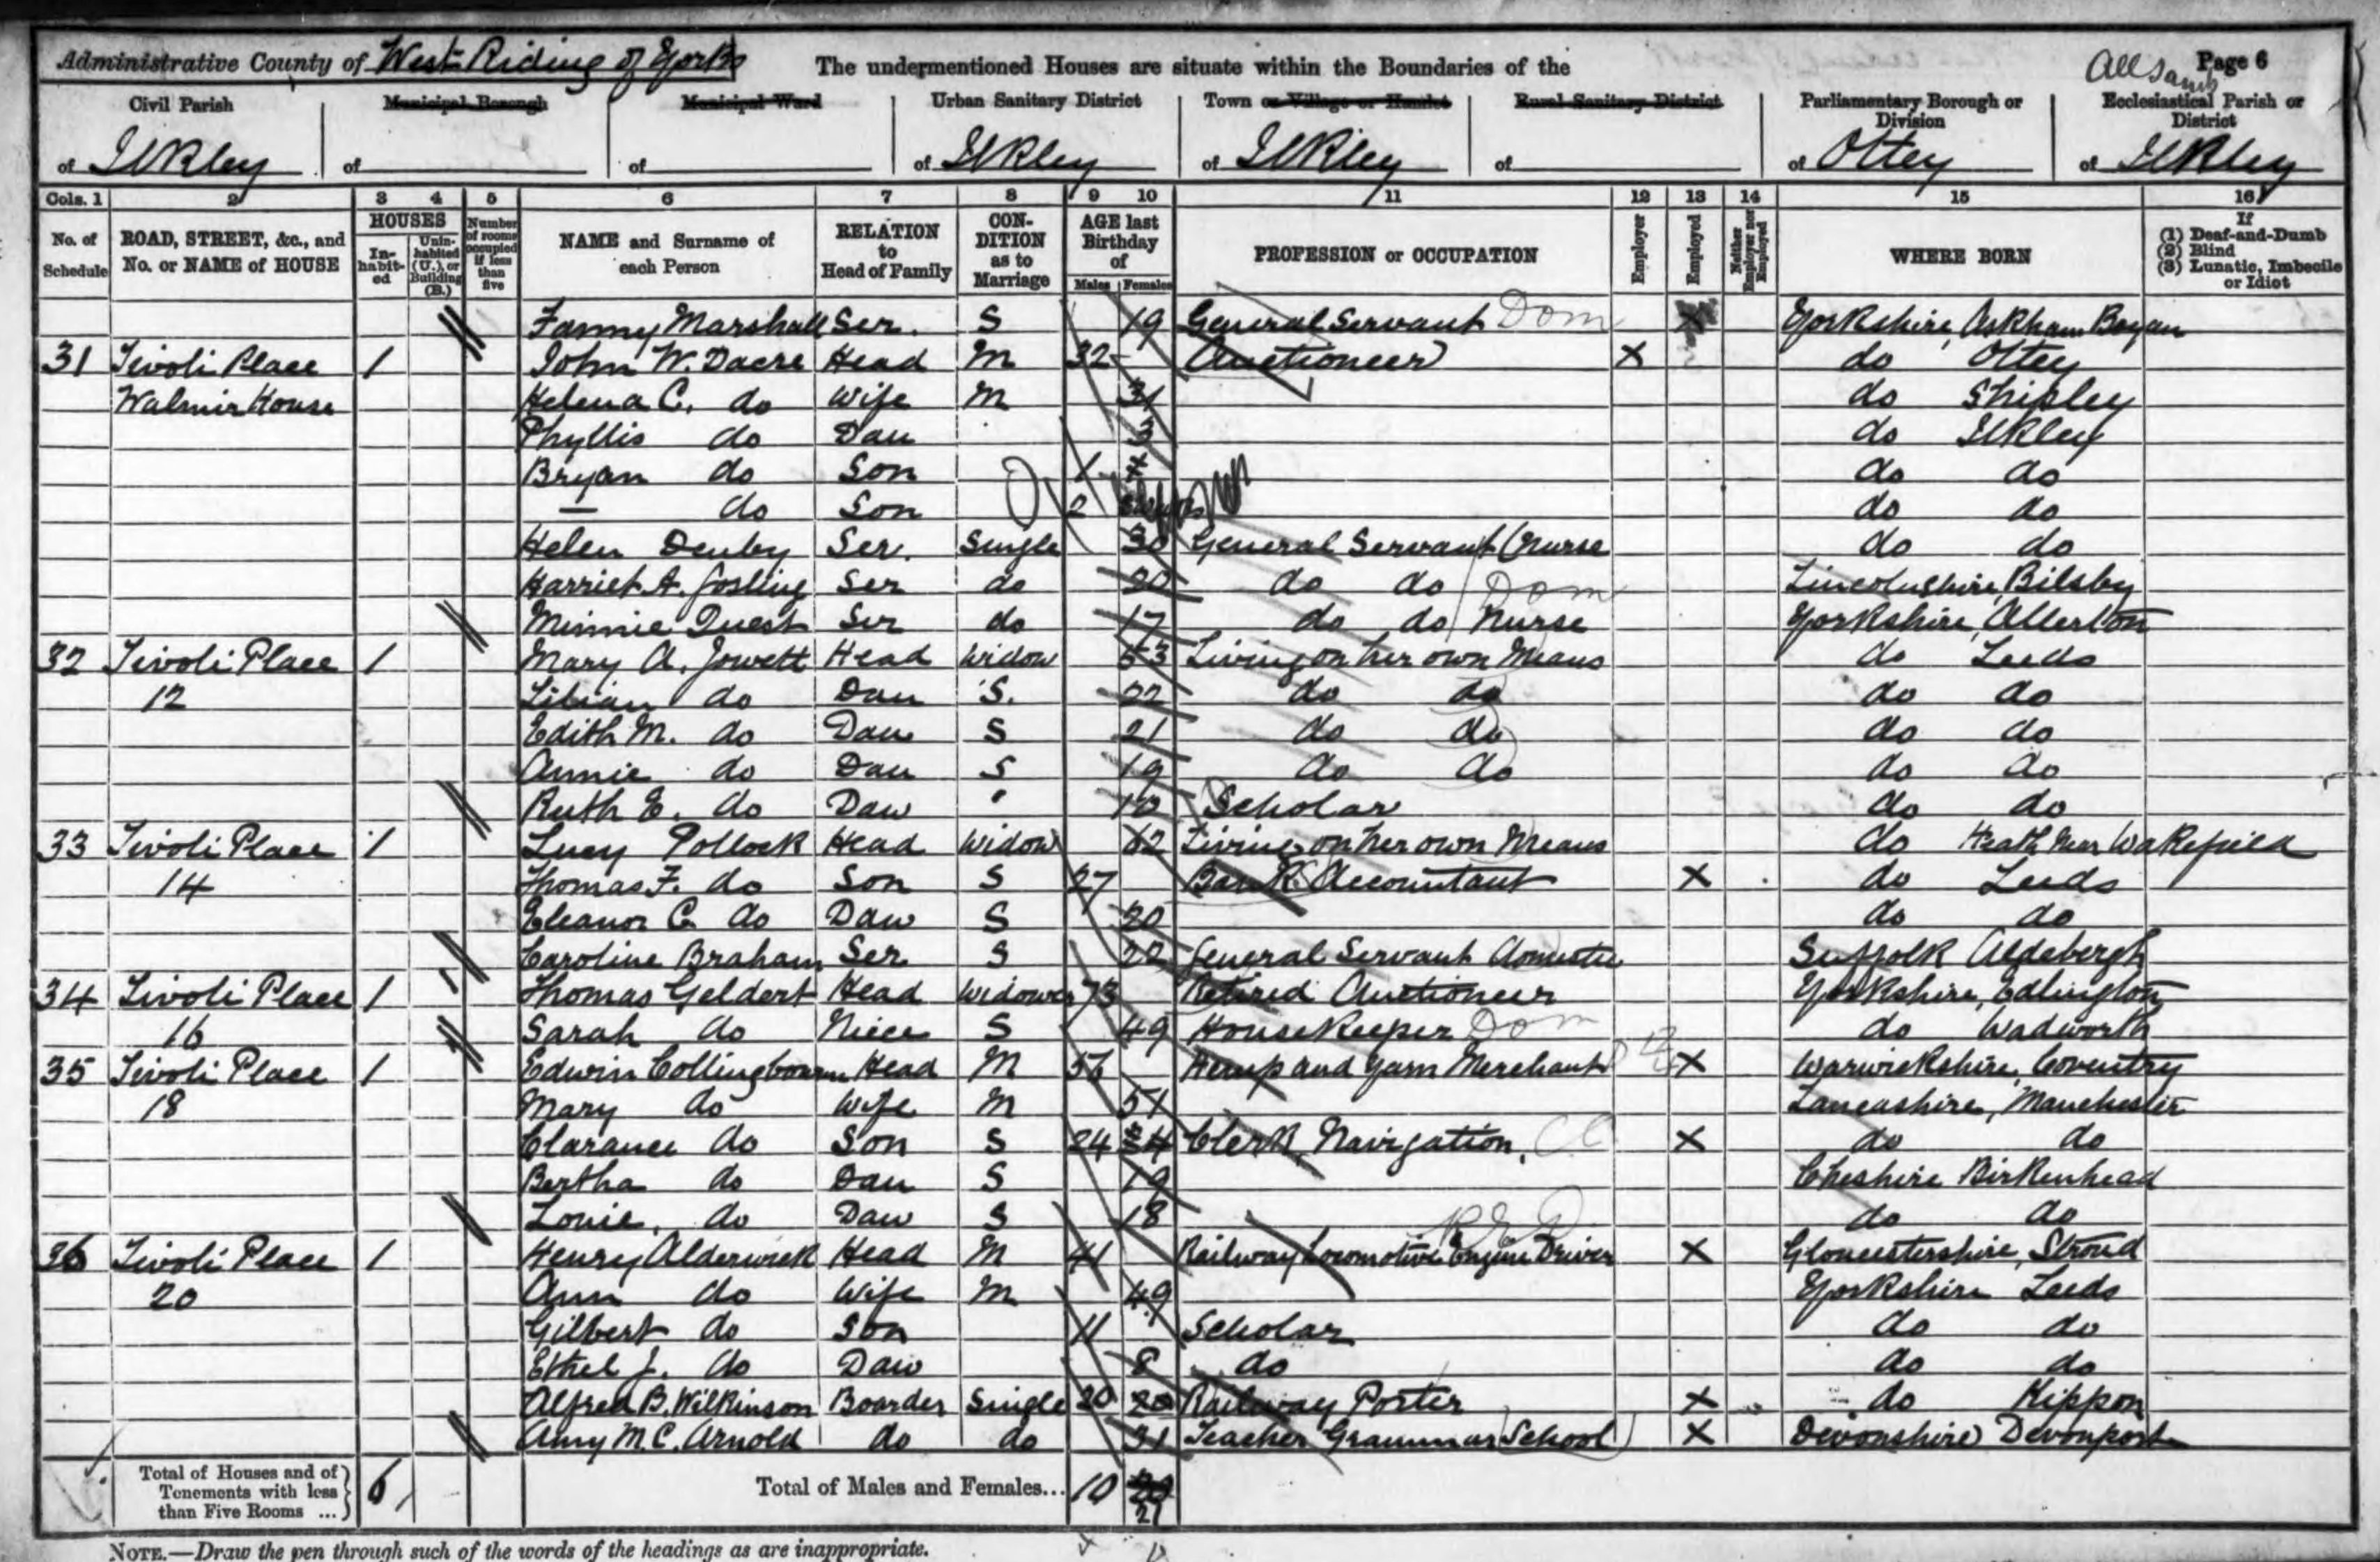 Administrative County of West Riding of Yorks The undermentioned Houses are situate within the Boundaries of the All Saints Page 6
Civil Parish Municipal Borough Municipal Ward Urban Sanitary District Town or Village or Hamlet Rural Sanitary District Parliamentary Borough or Division Ecclesiastical Parish or District
of Ilkley of of of Ilkley of Ilkley of of Otley of Ilkley
Cols. 1 2 3 4 5 6 7 8 9 10 11 12 13 14 15 16
No. of Schedule ROAD, STREET, &c., and No. or NAME of HOUSE HOUSES In-habit-ed Unin-habited (U.), or Building (B.) Number of rooms occupied if less than five NAME and Surname of each Person RELATION to Head of Family CON-DITION as to Marriage AGE last Birthday of Males Females PROFESSION or OCCUPATION Employer Employed Neither Employer nor Employed WHERE BORN If (1) Deaf-and-Dumb (2) Blind (3) Lunatic, Imbecile or Idiot
Fanny Marshall Ser. S 19 General Servant Dom X Yorkshire, Askham Bryan
31 Tivoli Place 1 John W. Dacre Head M 32 Auctioneer X do Otley
House Helena C. do Wife M 31 do Shipley
Phyllis do Dau 3 do Ilkley
Bryan do Son 1 do do
— do Son 2 do do
Helen Denby Ser. Single 30 General Servant (Nurse do do
Harriet A. Josling Ser do 20 do do Dom Lincolnshire, Bilsby
Minnie Quest Ser do 17 do do Nurse Yorkshire, Allerton
32 Tivoli Place 1 Mary A. Jowett Head Widow 53 Living on her own Means do Leeds
12 Lilian do Dau S. 22 do do do do
Edith M. do Dau S 21 do do do do
Annie do Dau S 19 do do do do
Ruth E. do Daw " 10 Scholar do do
33 Tivoli Place 1 Lucy Pollock Head Widow 62 Living on her own Means do Heath Near Wakefield
14 Thomas F. do Son S 27 Bank Accountant X do Leeds
Eleanor C. do Daw S 20 do do
Caroline Braham Ser S 22 General Servant Domestic Suffolk Aldebergh
34 Tivoli Place 1 Thomas Geldert Head Widower 73 Retired Auctioneer Yorkshire, Edlington
16 Sarah do Niece S 49 Housekeeper Dom do Wadworth
35 Tivoli Place 1 Edwin Collingbourn Head M 56 Hemp and Yarn Merchant X Warwickshire, Coventry
18 Mary do Wife M 51 Lancashire, Manchester
Clarance do Son S 24 24 Clerk, Navigation. X do do
Bertha do Dau S 19 Cheshire Birkenhead
Louie, do Daw S 18 do do
36 Tivoli Place 1 Henry Alderwick Head M 41 Railway Locomotive Engine Driver X Gloucestershire, Stroud
20 Ann do Wife M 49 Yorkshire Leeds
Gilbert do Son 11 Scholar do do
Ethel J. do Daw 8 do do do
Alfred B. Wilkinson Boarder Single 20 20 Railway Porter X do Kippon
Amy M. C. Arnold do do 31 Teacher Grammar School X Devonshire Devonport
Total of Houses and of Tenements with less than Five Rooms ... 6 Total of Males and Females... 10 20
21
NOTE.—Draw the pen through such of the words of the headings as are inappropriate.